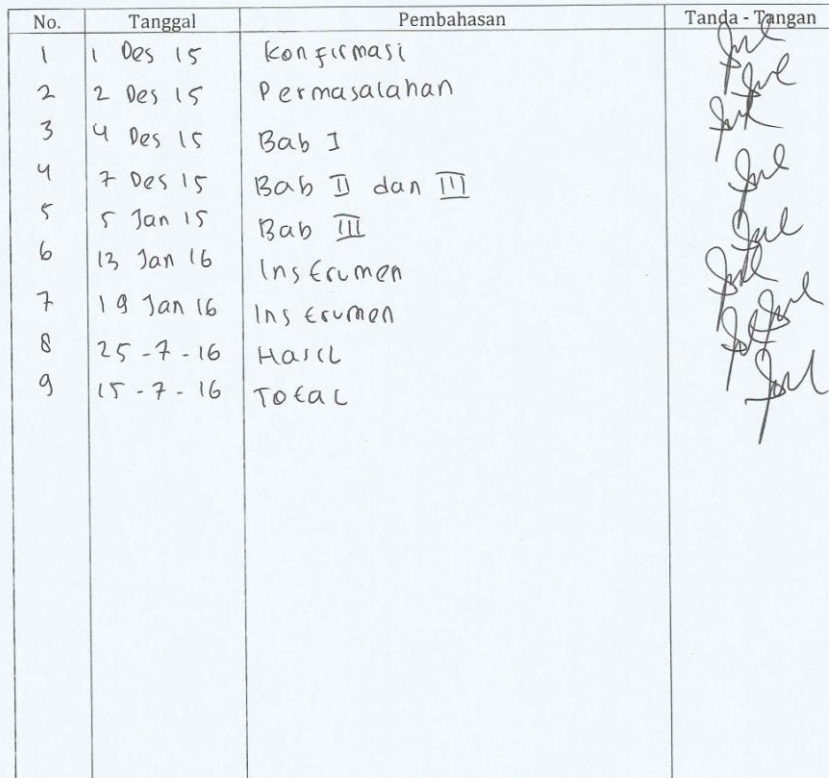 No. Tanggal Pembahasan Tanda - Tangan
1 1 Des 15 Konfirmasi
2 2 Des 15 Permasalahan
3 4 Des 15 Bab I
4 7 Des 15 Bab II dan III
5 5 Jan 15 Bab III
6 13 Jan 16 Instrumen
7 19 Jan 16 Instrumen
8 25 - 7 - 16 Hasil
9 15 - 7 - 16 Total